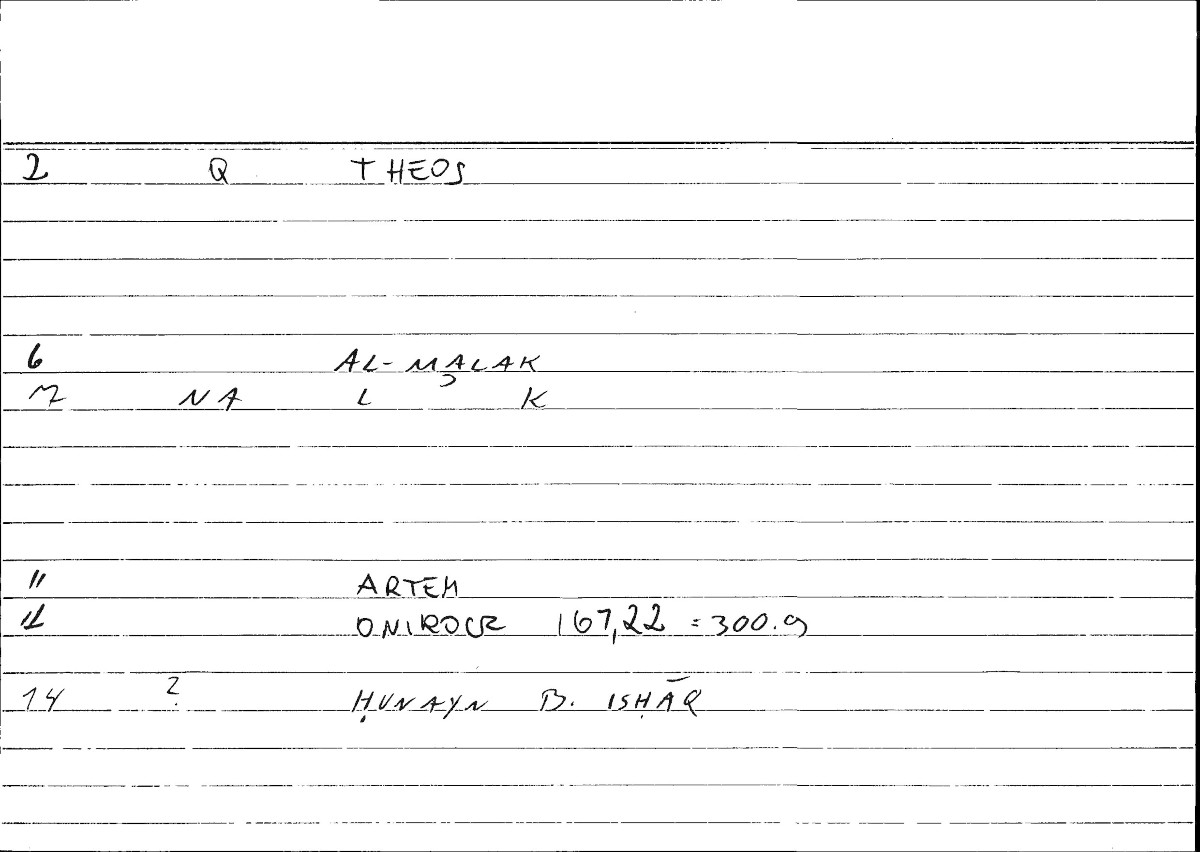 2 Q THEOS
6 AL-MALAK
7 NA L K
11 ARTEM
12 ONIROCR 167,22 = 300.9
14 ? ḤUNAYN B. ISḤĀQ